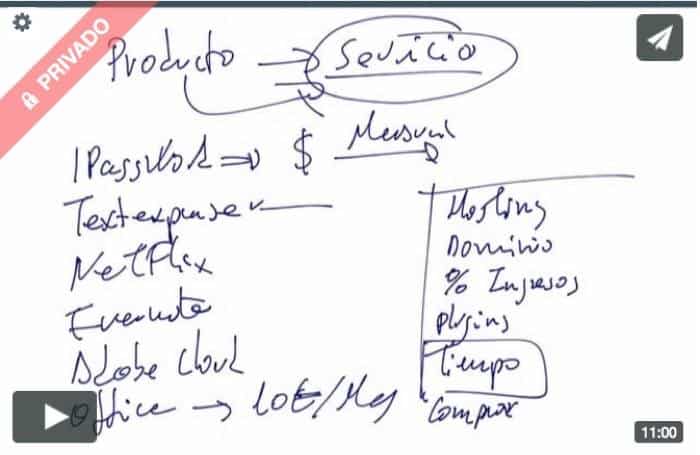 PRIVADO
Producto → Servicio
1Password ⇒ $ Mensual
Textexpander
Hosting
Netflix
Dominio
Evernote
% Ingresos
plugins
Adobe Cloud
Tiempo
Office → 10€/Mes
Comprar
11:00